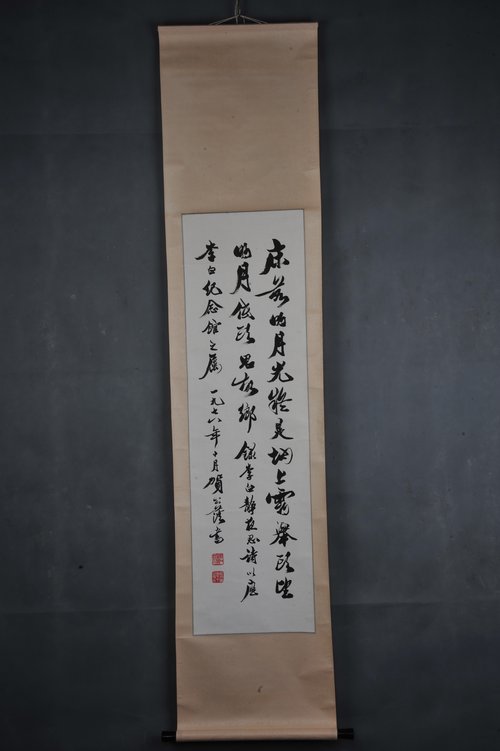 床前明月光疑是地上霜舉頭望
明月低頭思故鄉 錄李白靜夜思詩以應
李白紀念館之屬 一九七八年十月賀書